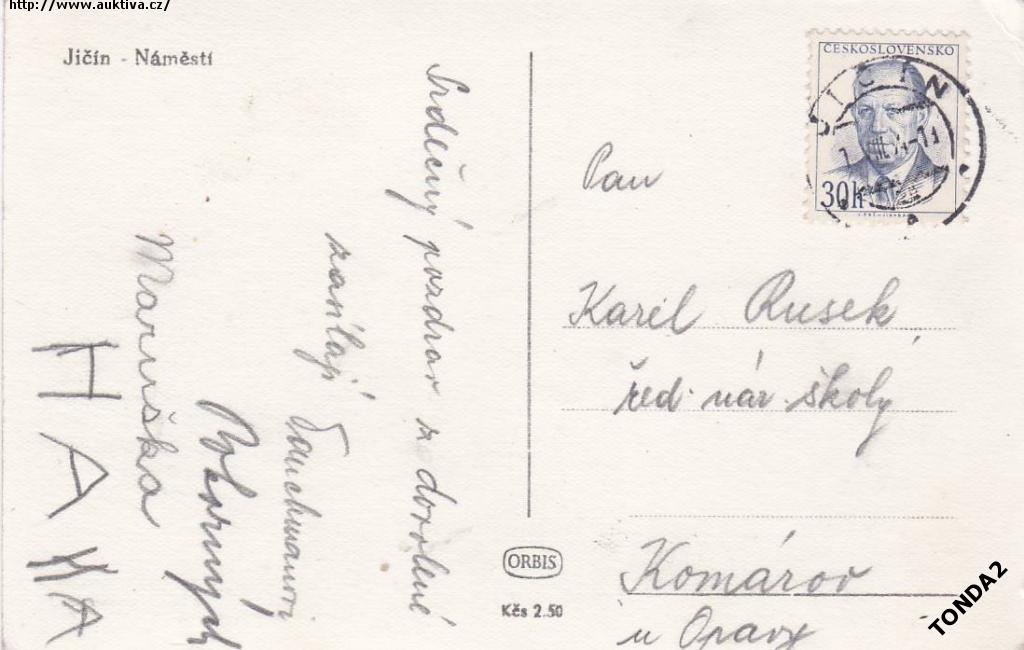 http://www.auktiva.cz/
Jičín - Náměstí
Srdečný pozdrav z dovolené
zasílají
Tauchmanovi
Marruška
HANA
ČESKOSLOVENSKO
JIČÍN
30h
Pan
Karel Rusek
řed. nár školy
Komárov
u Opavy
ORBIS
Kčs 2.50
TONDA2